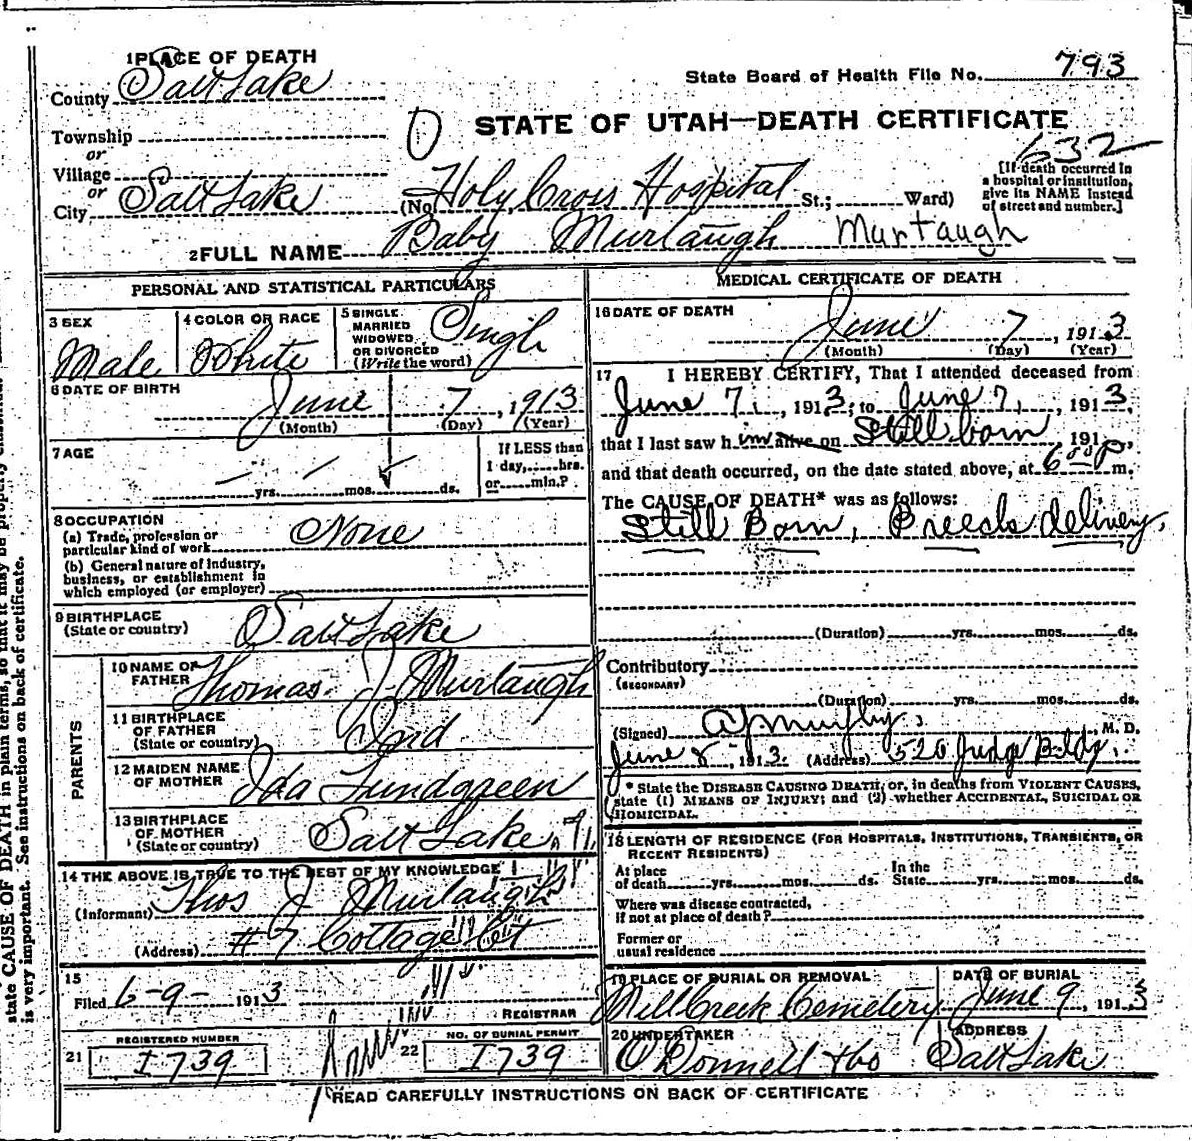 1 PLACE OF DEATH
County Salt Lake
State Board of Health File No. 793
Township
or
Village
or
City Salt Lake
STATE OF UTAH—DEATH CERTIFICATE
632
(No. Holy Cross Hospital St.; Ward)
[If death occurred in
a hospital or institution,
give its NAME instead
of street and number.]
2 FULL NAME Baby Murtaugh Murtaugh
PERSONAL AND STATISTICAL PARTICULARS
3 SEX
Male
4 COLOR OR RACE
White
5 SINGLE
MARRIED
WIDOWED
OR DIVORCED
(Write the word)
Singl
6 DATE OF BIRTH
June 7, 1913
(Month) (Day) (Year)
7 AGE
yrs. mos. ds.
If LESS than
1 day, hrs.
or min.?
8 OCCUPATION
(a) Trade, profession or
particular kind of work
None
(b) General nature of industry,
business, or establishment in
which employed (or employer)
9 BIRTHPLACE
(State or country)
Salt Lake
PARENTS
10 NAME OF
FATHER
Thomas J. Murtaugh
11 BIRTHPLACE
OF FATHER
(State or country)
Ind
12 MAIDEN NAME
OF MOTHER
Ida Lundgreen
13 BIRTHPLACE
OF MOTHER
(State or country)
Salt Lake
14 THE ABOVE IS TRUE TO THE BEST OF MY KNOWLEDGE
(Informant) Thos J Murtaugh
(Address) #7 Cottage Ct
15
Filed 6-9- 1913
REGISTRAR
21
REGISTERED NUMBER
I739
22
NO. OF BURIAL PERMIT
I739
MEDICAL CERTIFICATE OF DEATH
16 DATE OF DEATH
June 7, 1913
(Month) (Day) (Year)
17 I HEREBY CERTIFY, That I attended deceased from
June 7, 1913, to June 7, 1913,
that I last saw him alive on Still born, 191 ,
and that death occurred, on the date stated above, at 6 00 P m.
The CAUSE OF DEATH* was as follows:
Still Born, Breech delivery.
(Duration) yrs. mos. ds.
Contributory
(SECONDARY)
(Duration) yrs. mos. ds.
(Signed) AJ Murphy, M. D.
June 8, 1913. (Address) 520 Judge Bldg.
* State the DISEASE CAUSING DEATH, or, in deaths from VIOLENT CAUSES,
state (1) MEANS OF INJURY; and (2) whether ACCIDENTAL, SUICIDAL OR
HOMICIDAL.
18 LENGTH OF RESIDENCE (FOR HOSPITALS, INSTITUTIONS, TRANSIENTS, OR
RECENT RESIDENTS)
At place
of death yrs. mos. ds.
In the
State yrs. mos. ds.
Where was disease contracted,
if not at place of death?
Former or
usual residence
19 PLACE OF BURIAL OR REMOVAL
Mill Creek Cemetery
DATE OF BURIAL
June 9, 1913
20 UNDERTAKER
O'Donnell & Co
ADDRESS
Salt Lake
READ CAREFULLY INSTRUCTIONS ON BACK OF CERTIFICATE
state CAUSE OF DEATH in plain terms, so that it may be properly
is very important. See instructions on back of certificate.